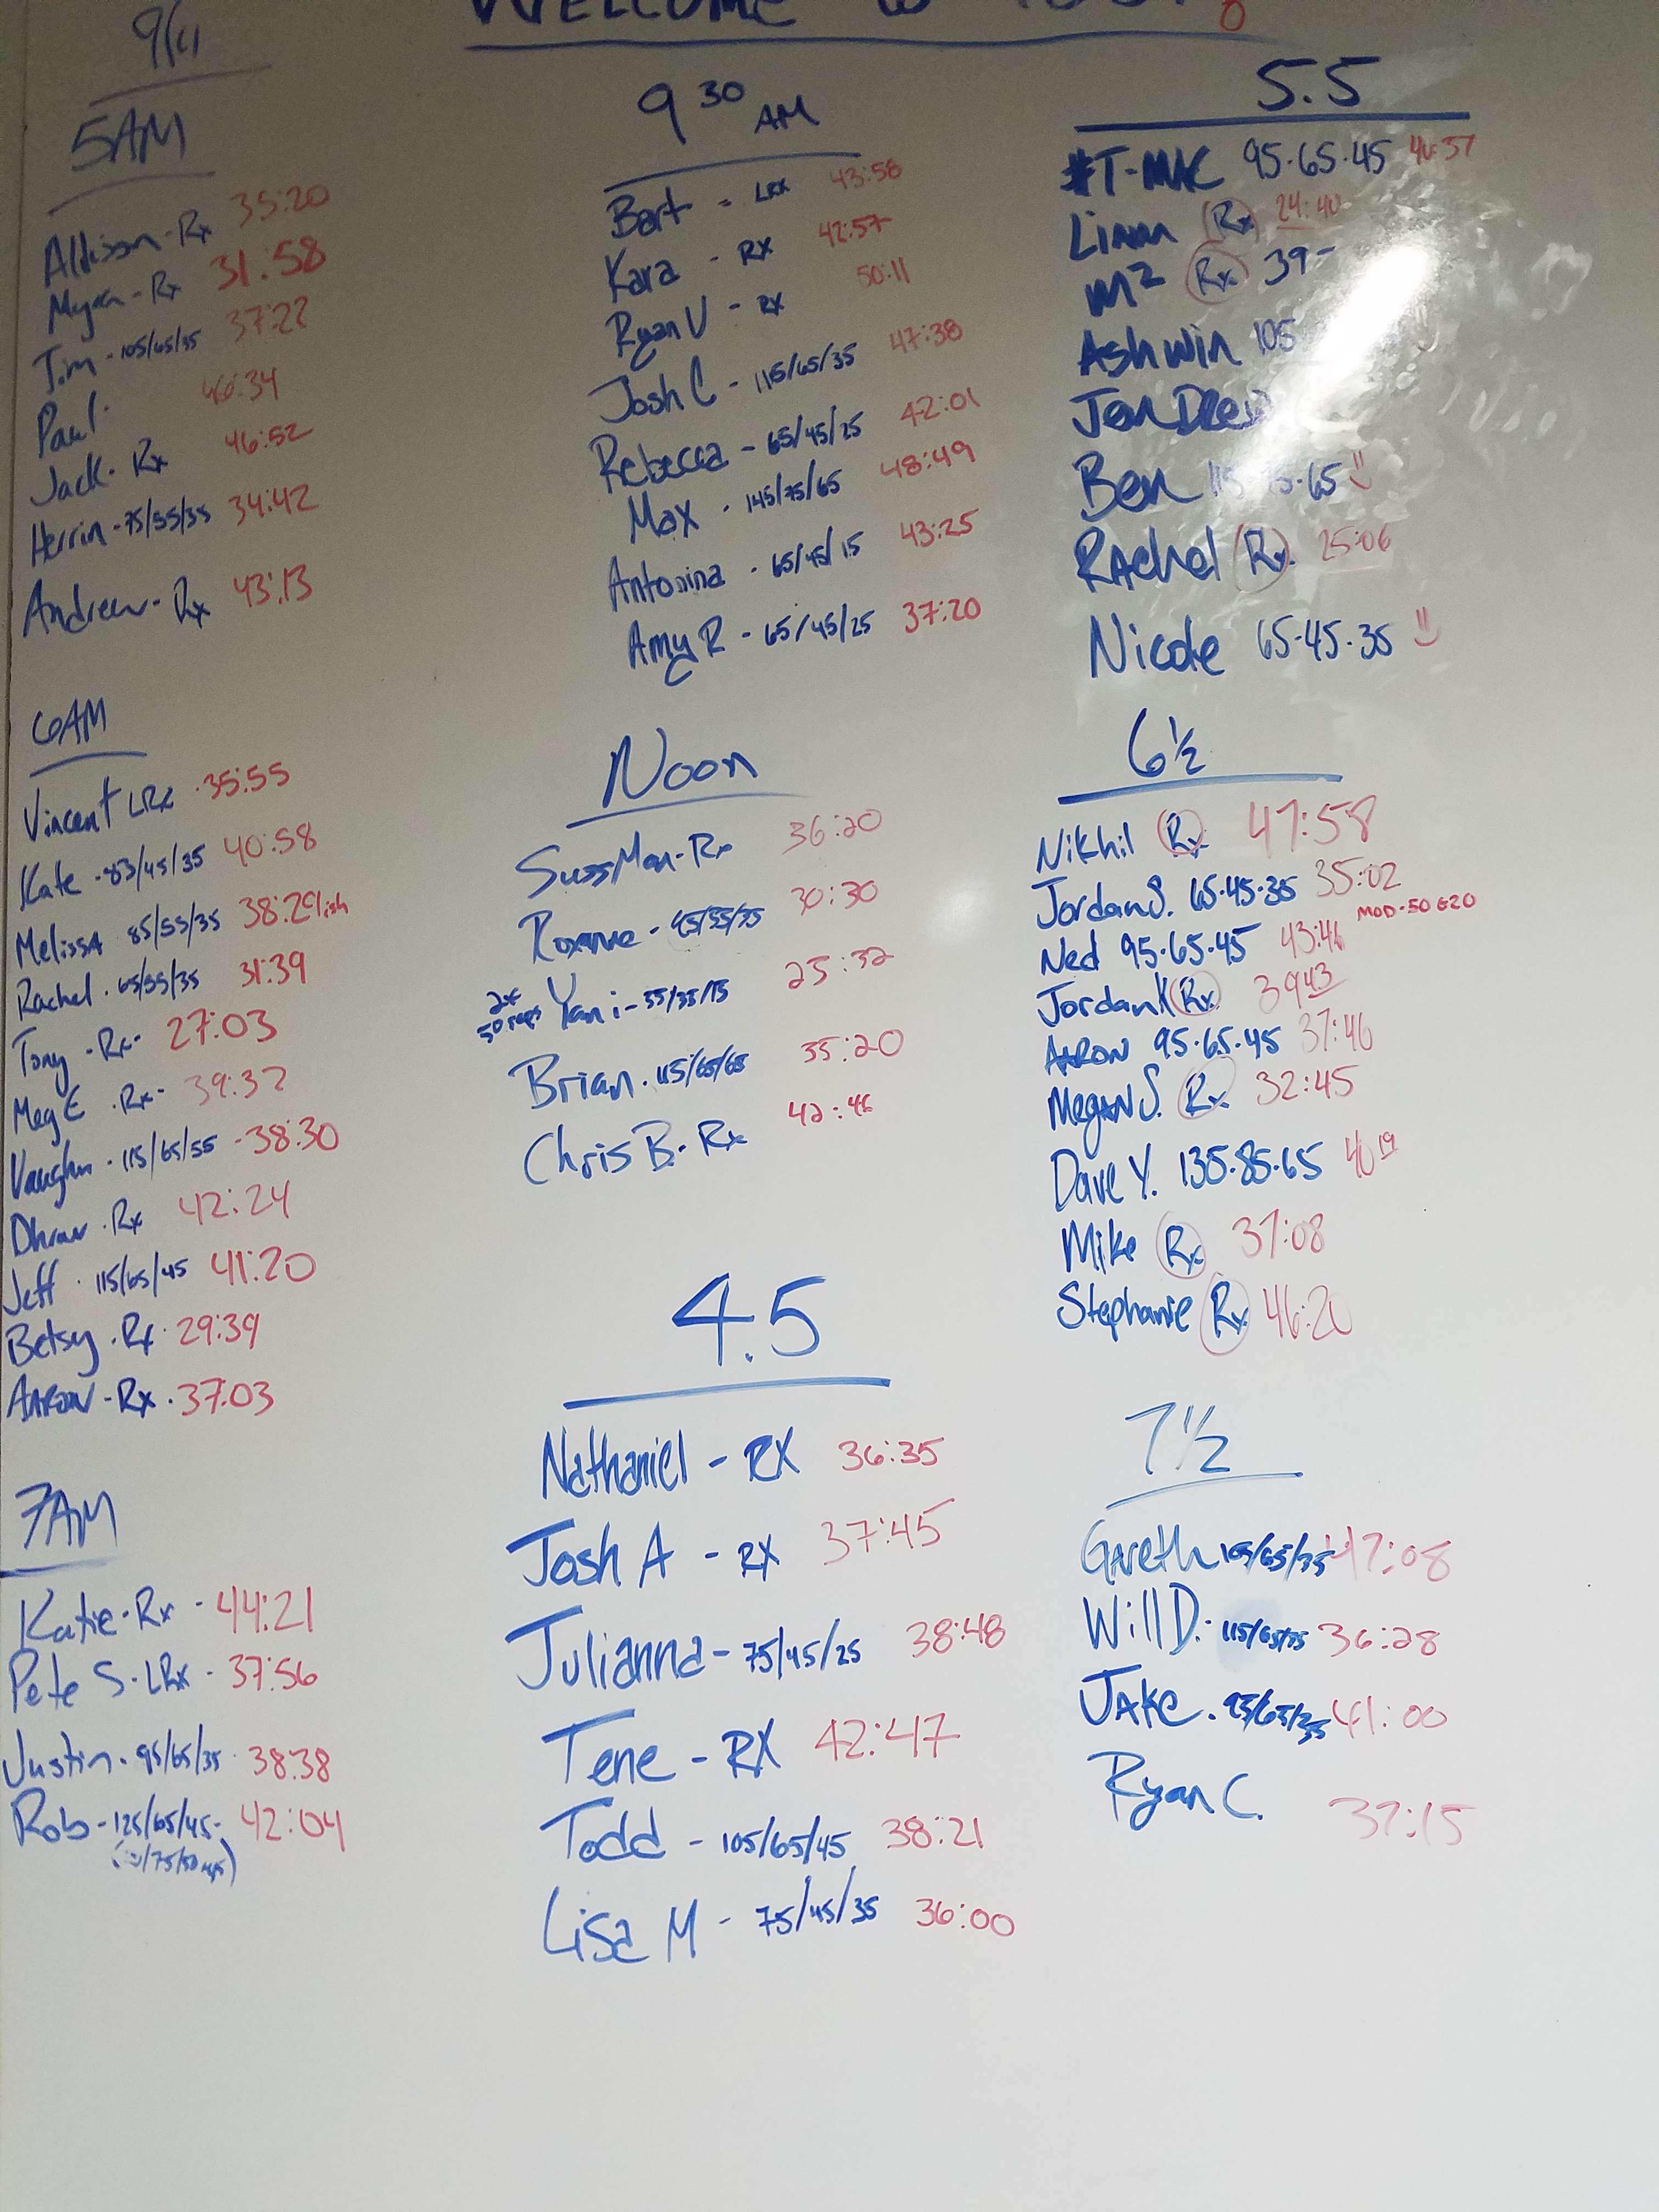 WELCOME to
9/11
5AM
Addison-Rx 35:20
Mygen-Rx 31:58
Tim-105/65/35 37:22
Paul. 46:34
Jack-Rx 46:52
Herrin-75/55/35 34:42
Andrew-Rx 43:13
6AM
Vincent LRx .35:55
Kate .83/45/35 40:58
Melissa 85/55/35 38:29ish
Rachel. 65/55/35 31:39
Tony -Rx- 27:03
Meg E .Rx- 39:32
Vaughn. 115/65/55 -38:30
Dhruv .Rx 42:24
Jeff. 115/65/45 41:20
Betsy .Rx. 29:39
AARON-Rx. 37:03
7AM
Katie-Rx - 44:21
Pete S.LRx - 37:56
Justin. 95/65/35. 38:38
Rob-125/65/45- 42:04
/75/50
9 30 AM
Bart - LRX 43:58
Kara - RX 42:57
Ryan V - RX 50:11
Josh C - 115/65/35 47:38
Rebecca - 65/45/25 42:01
Max - 145/75/65 48:49
Antonina - 65/45/15 43:25
Amy R - 65/45/25 37:20
Noon
SussMan-Rx 36:20
Roxanne- 45/35/35 30:30
50 reps Yani-55/35/15 25:32
Brian. 115/65/65 35:20
Chris B. Rx 42:46
4.5
Nathaniel - RX 36:35
Josh A - RX 37:45
Julianna - 75/45/25 38:48
Tene - RX 42:47
Todd - 105/65/45 38:21
Lisa M - 75/45/35 36:00
5.5
#T-MAC 95.65.45 40:57
Liam Rx 24:40
M² Rx 39-
Ashwin 105
Jen Drew
Ben 115.75.65
RAchel Rx 25:06
Nicole 65.45.35
6½
Nikhil Rx 47:58
Jordan S. 65.45.35 35:02
Ned 95.65.45 43:46 MOD-50 @20
Jordan K Rx 39 43
AARON 95.65.45 37:46
Megan S. Rx 32:45
Dave Y. 135.85.65 40 19
Mike Rx 37:08
Stephanie Rx 46:20
7½
Gareth 105/65/35 47:08
Will D. 115/65/35 36:28
JAKe. 95/65/35 41:00
Ryan C. 37:15